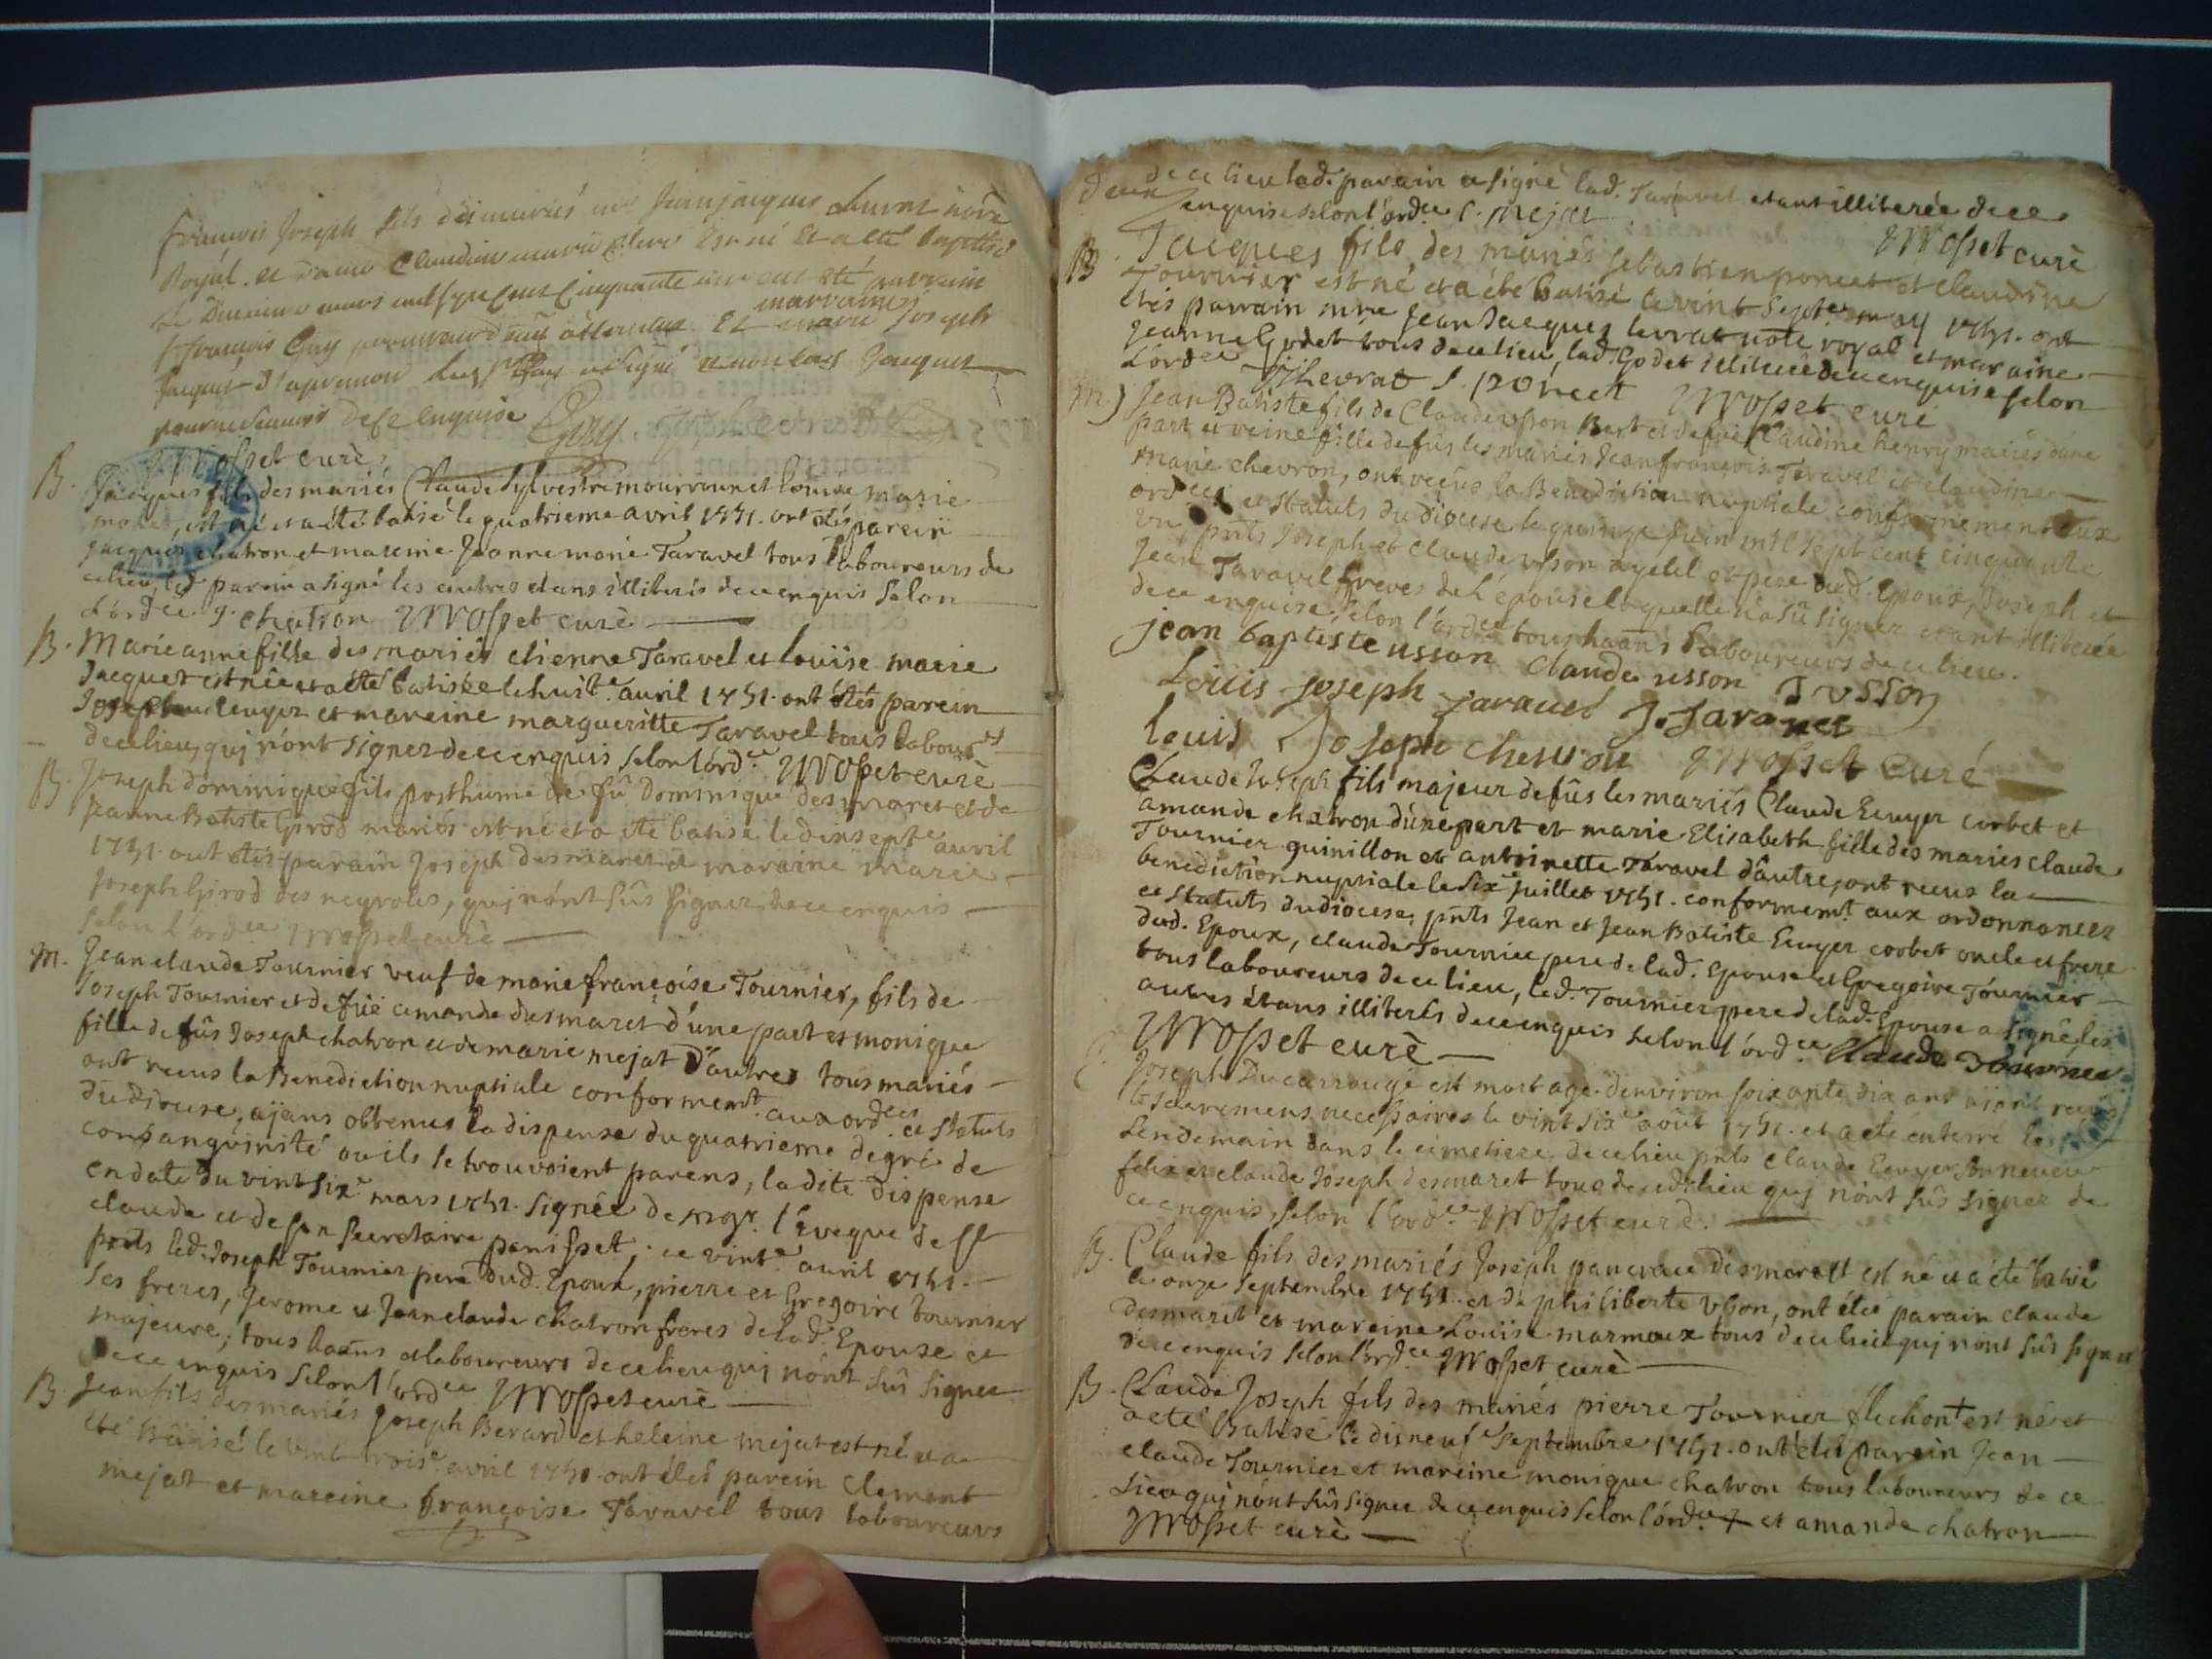 françois Joseph fils des mariés me Jean jacques Levrat nôre
Royal. et dame Claudine marie est né et a été baptisé
le mars mil sept cent cinquante un ont été parrain
françois Guy marraine
et marie Joseph
Jacquet a signé et non lad Jacquet
pour ne sçavoir de ce enquise Guy
JMosset curè
B. Jacques fils des mariés Claude Sylvestre et louise marie
est né et a été batisé le quatrieme avril 1751. ont étés parein
jacques chatron et mareine Jeanne marie Taravel tous laboureurs de
ce lieu, led. parein a signé les autres etans illiterés de ce enquis selon
l'ordce J. chatron JMosset curè
B. Marie anne fille des mariés etienne Taravel et louise marie
Jacquet est née et a été batisée le huite. avril 1751. ont étés parein
Joseph et mareine margueritte Taravel tous labours
de ce lieu, qui n'ont signer de ce enquis selon l'ordce. JMosset curè
B. Joseph dominique fils posthume de fû Dominique desmaret et de
Jeanne Batiste Girod mariés est né et a été batisé le dixsepte avril
1751. ont étés parain Joseph desmaret et maraine marie
Joseph Girod des neyroles, qui n'ont sûs signer, de ce enquis
selon l'ordce JMosset curè
M. Jean claude Tournier veuf de marie françoise Tournier, fils de
Joseph Tournier et de fuë amande desmaret d'une part et monique
fille de fûs Joseph chatron et de marie mejat d'autre tous mariés
ont recus la Benediction nuptiale conformemt. aux ordces et statuts
du diocese, ayans obtenus la dispense du quatrieme degré de
consanguinité ou ils se trouvoient parens, la dite dispense
en date du vint sixe mars 1751. signée de mgr. l'Eveque de st
claude et de son secretaire panisset; ce vinte avril 1751.
pnts led. Joseph Tournier pere dud. Epoux, pierre et Gregoire tournier
ses freres, Jerome et Jean claude chatron freres de lad. Epouse et
majeurs, tous haans et laboureurs de ce lieu qui n'ont sûs signer
de ce enquis selon l'ordce JMosset curè
B. Jean fils des mariés Joseph Berard et heleine mejat est né et a
été Batisé le vint troise. avril 1751. ont étés parein Clement
mejat et mareine françoise Taravel tous laboureurs
de ce lieu lad. parain a signé lad. Taravel etant illiterée de ce
enquise selon l'ordce C. mejat
JMosset curè
B. Jacques fils des mariés sebastien poncet et claudine
Tournier est né et a été batisé le vint septe. may 1751. ont
étés parrain mre Jean Jacques levrat note royal et maraine
Jeanne Godet tous de ce lieu, lad. Godet illiterée de ce enquise selon
l'ordce JJ Levrat S. poncet JMosset curè
M. Jean Batiste fils de Claude usson Bert et de fuë Claudine henry mariés d'une
part et reine fille de fûs les mariés Jean françois Taravel et claudine
marie chevron, ont reçûs la Benediction nuptiale conformement aux
ordces et statuts du diocese le quinze juin mil sept cent cinquante
un pnts Joseph et Claude usson ayeul et pere dud. Epoux, Joseph et
Jean Taravel freres de l'épouse laquelle n'a sû signer etant illiterée
de ce enquise selon l'ordce tous haans laboureurs de ce lieu.
jean baptiste usson Claude usson J usson
Louis joseph taravel J. taravel
Louis Joseph chevron JMosset curé
Claude Joseph fils majeur de fûs les mariés Claude Ecuyer corbet et
amande chatron d'une part et marie Elisabeth fille des mariés claude
Tournier guinillon et antoinette Taravel d'autre, ont recus la
benediction nuptiale le sixe juillet 1751. conformemt. aux ordonnances
et statuts du diocese, pnts Jean et Jean Batiste Ecuyer corbet oncle et frere
dud. Epoux, claude Tournier pere de lad. Epouse et Gregoire Tournier
tous laboureurs de ce lieu, led. Tournier pere de lad. Epouse a signé, les
autres étans illiterés de ce enquis selon l'ordce Claude Tournier
JMosset curè
Joseph Ducarrouge est mort agé d'environ soixante dix ans aiant recus
les sacremens necessaires le vint sixe août 1751. et a été enterré le
Lendemain dans le cimetiere de ce lieu pnts claude Ecuyer son neveu
felix et claude Joseph desmaret tous de ce dit lieu qui n'ont sûs signer de
ce enquis, selon l'ordce JMosset curè.
B. Claude fils des mariés Joseph pancrace desmaret est né et a été batisé
le onze septembre 1751. et de philiberte usson, ont étés parain claude
desmaret et mareine Louise marmoux tous de ce lieu qui n'ont sûs signer
de ce enquis selon l'ordce JMosset curè
B. Claude Joseph fils des mariés pierre Tournier flechon + est né et
a été Batisé le disneufe septembre 1751. ont étés parein Jean
claude Tournier et mareine monique chatron tous laboureurs de ce
lieu qui n'ont sûs signer de ce enquis selon l'ordce + et amande chatron
JMosset curè